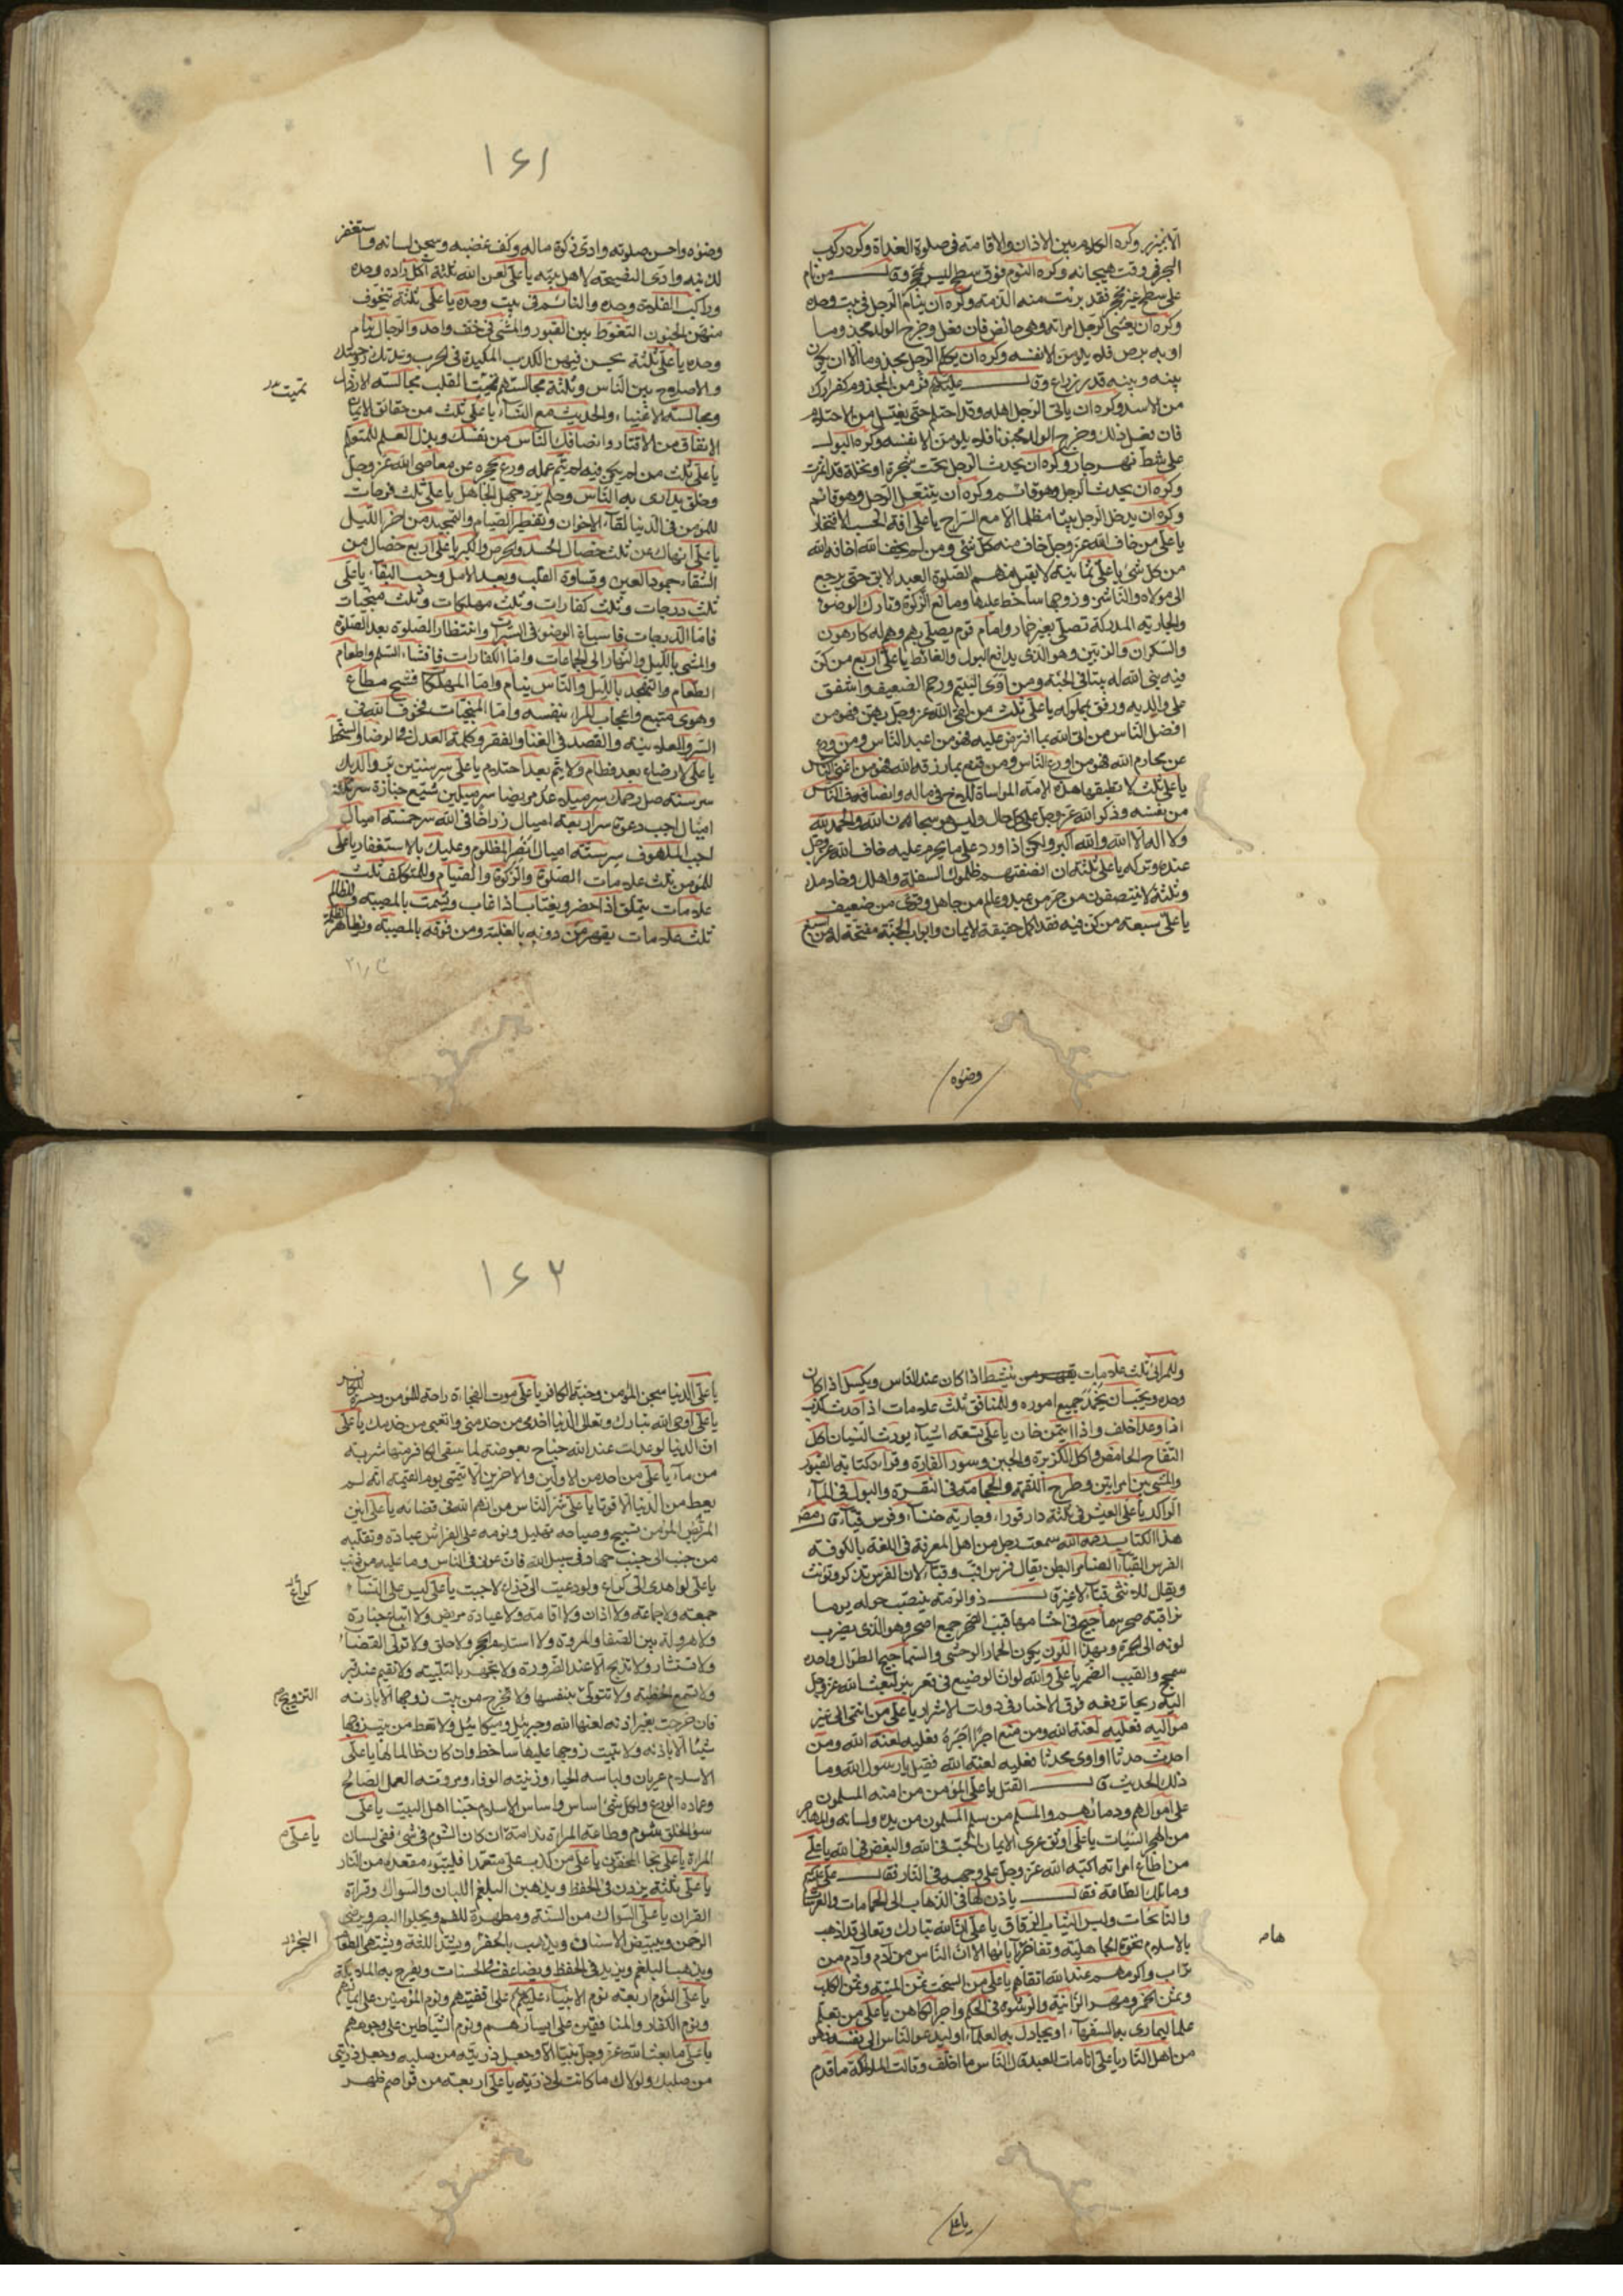 الا بخير وكره الكلام بين الاذان والاقامة فى صلوة الغداة وكره ركوب
البحر فى وقت هيجانه وكره النوم فوق سطح ليس بمحجر وقال من نام
على سطح غير محجر فقد برئت منه الذمة وكره ان ينام الرجل فى بيت وحده
وكره ان يغشى الرجل امراته وهى حائض فان فعل وخرج الولد مجذوما
او به برص فلا يلومن الا نفسه وكره ان يكلم الرجل مجذوما الا ان يكون
بينه وبينه قدر ذراع وقال عليكم فر من المجذوم كفرارك
من الاسد وكره ان ياتى الرجل اهله وقد احتلم حتى يغتسل من الاحتلام
فان فعل ذلك وخرج الولد مجنونا فلا يلومن الا نفسه وكره البول
على شط نهر جار وكره ان يحدث الرجل تحت شجرة او نخلة قد اثمرت
وكره ان يحدث الرجل وهو قائم وكره ان يتنعل الرجل وهو قائم
وكره ان يدخل الرجل بيتا مظلما الا مع السراج يا على افة الحسب الافتخار
يا على من خاف الله عز وجل خاف منه كل شئ ومن لم يخف الله اخافه الله
من كل شئ يا على ثمانية لا يقبل منهم الصلوة العبد الابق حتى يرجع
الى مولاه والناشز وزوجها ساخط عليها ومانع الزكوة وتارك الوضوء
والجارية المدركة تصلى بغير خمار وامام قوم يصلى بهم وهم له كارهون
والسكران والزبين وهو الذى يدافع البول والغائط يا على اربع من كن
فيه بنى الله له بيتا فى الجنة ومن اوى اليتيم ورحم الضعيف واشفق
على والديه ورفق بمملوكه يا على ثلث من لقى الله عز وجل بهن فهو من
افضل الناس من اتى الله بما افترض عليه فهو من اعبد الناس ومن ورع
عن محارم الله فهو من اورع الناس ومن قنع بما رزقه الله فهو من اغنى الناس
يا على ثلث لا تطيقها هذه الامة المواساة للاخ فى ماله وانصاف الناس
من نفسه وذكر الله عز وجل على كل حال وليس هو سبحان الله والحمد لله
ولا اله الا الله والله اكبر ولكن اذا ورد على ما يحرم عليه خاف الله عز وجل
عنده وتركه يا على ثلثة ان انصفتهم ظلموك السفلة واهلك وخادمك
وثلثة لا ينتصفون من ثلثة حر من عبد وعالم من جاهل وقوى من ضعيف
يا على سبعة من كن فيه فقد استكمل حقيقة الايمان وابواب الجنة مفتحة له من اسبغ
وضوئه
١٤١
وضوئه واحسن صلوته وادى زكوة ماله وكف غضبه وسجن لسانه واستغفر
لذنبه وادى النصيحة لاهل بيته يا على لعن الله ثلثة اكل زاده وحده
وراكب الفلوة وحده والنائم فى بيت وحده يا على ثلثة يتخوف
منهن الجنون التغوط بين القبور والمشى فى خف واحد والرجل ينام
وحده يا على ثلثة يحسن فيهن الكذب المكيدة فى الحرب وعدتك زوجتك
والاصلاح بين الناس وثلثة مجالستهم تميت القلب مجالسة الارذال
ومجالسة الاغنياء والحديث مع النساء يا على ثلث من حقائق الايمان
الانفاق من الاقتار وانصافك الناس من نفسك وبذل العلم للمتعلم
يا على ثلث من لم يكن فيه لم يتم عمله ورع يحجزه عن معاصى الله عز وجل
وخلق يدارى به الناس وحلم يرد به جهل الجاهل يا على ثلث فرحات
للمؤمن فى الدنيا لقاء الاخوان وتفطير الصيام والتهجد من اخر الليل
يا على انهاك عن ثلث خصال الحسد والحرص والكبر يا على اربع خصال من
الشقاء جمود العين وقساوة القلب وبعد الامل وحب البقاء يا على
ثلث درجات وثلث كفارات وثلث مهلكات وثلث منجيات
فاما الدرجات فاسباغ الوضوء فى السبرات وانتظار الصلوة بعد الصلوة
والمشى بالليل والنهار الى الجماعات واما الكفارات فافشاء السلام واطعام
الطعام والتهجد بالليل والناس ينام واما المهلكات فشح مطاع
وهوى متبع واعجاب المراء بنفسه واما المنجيات فخوف الله فى
السر والعلانية والقصد فى الغنا والفقر وكلمة العدل فى الرضا والسخط
يا على لا رضاع بعد فطام ولا يتم بعد احتلام يا على سر سنتين بر والديك
سر سنة صل رحمك سر ميلا عد مريضا سر ميلين شيع جنازة سر ثلثة
اميال اجب دعوة سر اربعة اميال زر اخا فى الله سر خمسة اميال
اجب الملهوف سر ستة اميال انصر المظلوم وعليك بالاستغفار يا على
للمؤمن ثلث علامات الصلوة والزكوة والصيام وللمتكلف ثلث
علامات يتملق اذا حضر ويغتاب اذا غاب ويشمت بالمصيبة وللظالم
ثلث علامات يقهر من دونه بالغلبة ومن فوقه بالمعصية ويظاهر الظلمة
تميت
وللمرائى ثلث علامات ينشط اذا كان عند الناس ويكسل اذا كان
وحده ويحب ان يحمد فى جميع اموره وللمنافق ثلث علامات اذا حدث كذب
اذا وعد اخلف واذا ائتمن خان يا على تسعة اشياء يورث النسيان اكل
التفاح الحامض واكل الكزبرة والجبن وسور الفارة وقراءة كتابة القبور
والمشى بين امراتين وطرح القملة والحجامة فى النقرة والبول فى الماء
الراكد يا على العيش فى ثلثة دار قوراء وجارية حسناء وفرس قباء قال مصنف
هذا الكتاب رحمه الله سمعت رجلا من اهل المعرفة فى اللغة بالكوفة
الفرس القباء الضامر البطن يقال فرس اقب وقباء لان الفرس يذكر ويونث
ويقال للانثى قباء لا غير قال ذو الرمة تنصبت حوله يوما
تراقبه صحر سماحيج فى احشائها قبب الصحر جمع اصحر وهو الذى يضرب
لونه الى الحمرة وهذا اللون يكون الحمار الوحشى والسماحيج الطوال واحدها
سمحج والقبب الضمر يا على والله لو ان الوضيع فى قعر بئر لبعث الله عز وجل
اليه ريحا ترفعه فوق الاخيار فى دولة الاشرار يا على من انتمى الى غير
مواليه فعليه لعنة الله ومن منع اجيرا اجره فعليه لعنة الله ومن
احدث حدثا او اوى محدثا فعليه لعنة الله فقيل يا رسول الله وما
ذلك الحديث قال القتل يا على المؤمن من امنه المسلمون
على اموالهم ودمائهم والمسلم من سلم المسلمون من يده ولسانه والمهاجر
من هجر السيئات يا على اوثق عرى الايمان الحب فى الله والبغض فى الله يا على
من اطاع امراته اكبه الله عز وجل على وجهه فى النار فقال على
وما تلك الطاعة فقال ياذن لها فى الذهاب الى الحمامات والعرسات
والنائحات ولبس الثياب الرقاق يا على ان الله تبارك وتعالى قد اذهب
بالاسلام نخوة الجاهلية وتفاخرها بآبائها الا ان الناس من آدم وآدم من
تراب واكرمهم عند الله اتقاهم يا على من السحت ثمن الميتة وثمن الكلب
وثمن الخمر ومهر الزانية والرشوة فى الحكم واجر الكاهن يا على من تعلم
علما ليمارى به السفهاء او يجادل به العلماء او ليدعو الناس الى نفسه فهو
من اهل النار يا على اذا مات العبد قال الناس ما اخلف وقالت الملائكة ما قدم
يا على
١٤٢
يا على الدنيا سجن المؤمن وجنة الكافر يا على موت الفجاءة راحة للمؤمن وحسرة للكافر
يا على اوحى الله تبارك وتعالى الى الدنيا اخدمى من خدمنى واتعبى من خدمك يا على
ان الدنيا لو عدلت عند الله جناح بعوضة لما سقى الكافر منها شربة
من ماء يا على من احد من الاولين والاخرين الا يتمنى يوم القيمة انه لم
يعط من الدنيا الا قوتا يا على شر الناس من اتهم الله فى قضائه يا على انين
المريض المؤمن تسبيح وصياحه تهليل ونومه على الفراش عبادة وتقلبه
من جنب الى جنب جهاد فى سبيل الله فان عوفى مشى فى الناس وما عليه من ذنب
يا على لو اهدى الى كراع ولو دعيت الى ذراع لاجبت يا على ليس على النساء
جمعة ولا جماعة ولا اذان ولا اقامة ولا عيادة مريض ولا اتباع جنازة
ولا هرولة بين الصفا والمروة ولا استلام الحجر ولا حلق ولا تولى القضاء
ولا تستشار ولا تذبح الا عند الضرورة ولا تجهر بالتلبية ولا تقيم عند قبر
ولا تسمع الخطبة ولا تتولى بنفسها ولا تخرج من بيت زوجها الا باذنه
فان خرجت بغير اذنه لعنها الله وجبرئيل وميكائيل ولا تعط من بيت زوجها
شيئا الا باذنه ولا تبيت زوجها عليها ساخط وان كان ظالما لها يا على
الاسلام عريان ولباسه الحياء وزينته الوفاء ومروته العمل الصالح
وعماده الورع ولكل شئ اساس واساس الاسلام حبنا اهل البيت يا على
سوء الخلق شوم وطاعة المراة ندامة ان كان الشوم فى شئ ففى لسان
المراة يا على نجا المخفون يا على من كذب على متعمدا فليتبوء مقعده من النار
يا على ثلثة يزدن فى الحفظ ويذهبن البلغم اللبان والسواك وقراءة
القران يا على السواك من السنة ومطهرة للفم ويجلوا البصر ويرضى
الرحمن ويبيض الاسنان ويذهب بالحفر ويشد اللثة ويشتهى الطعام
ويذهب بالبلغم ويزيد فى الحفظ ويضاعف الحسنات ويفرح به الملائكة
يا على النوم اربعة نوم الانبياء على اقفيتهم ونوم المؤمنين على ايمانهم
ونوم الكفار والمنافقين على ايسارهم ونوم الشياطين على وجوههم
يا على ما بعث الله عز وجل نبيا الا وجعل ذريته من صلبه وجعل ذريتى
من صلبك ولولاك ما كانت لى ذرية يا على اربعة من قواصم الظهر
كراع
التزويج
يا على